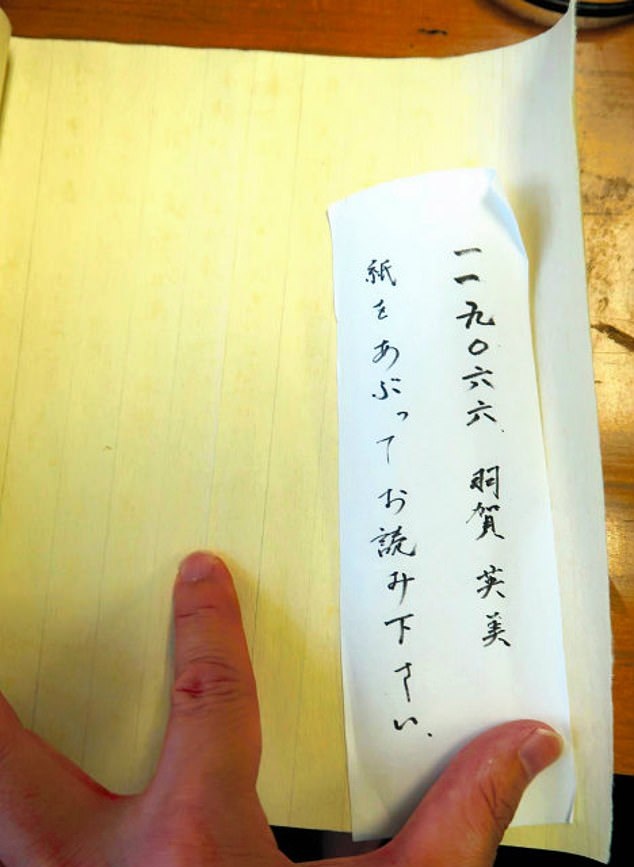 一一九〇六六、羽賀英美
紙をあぶってお読み下さい、